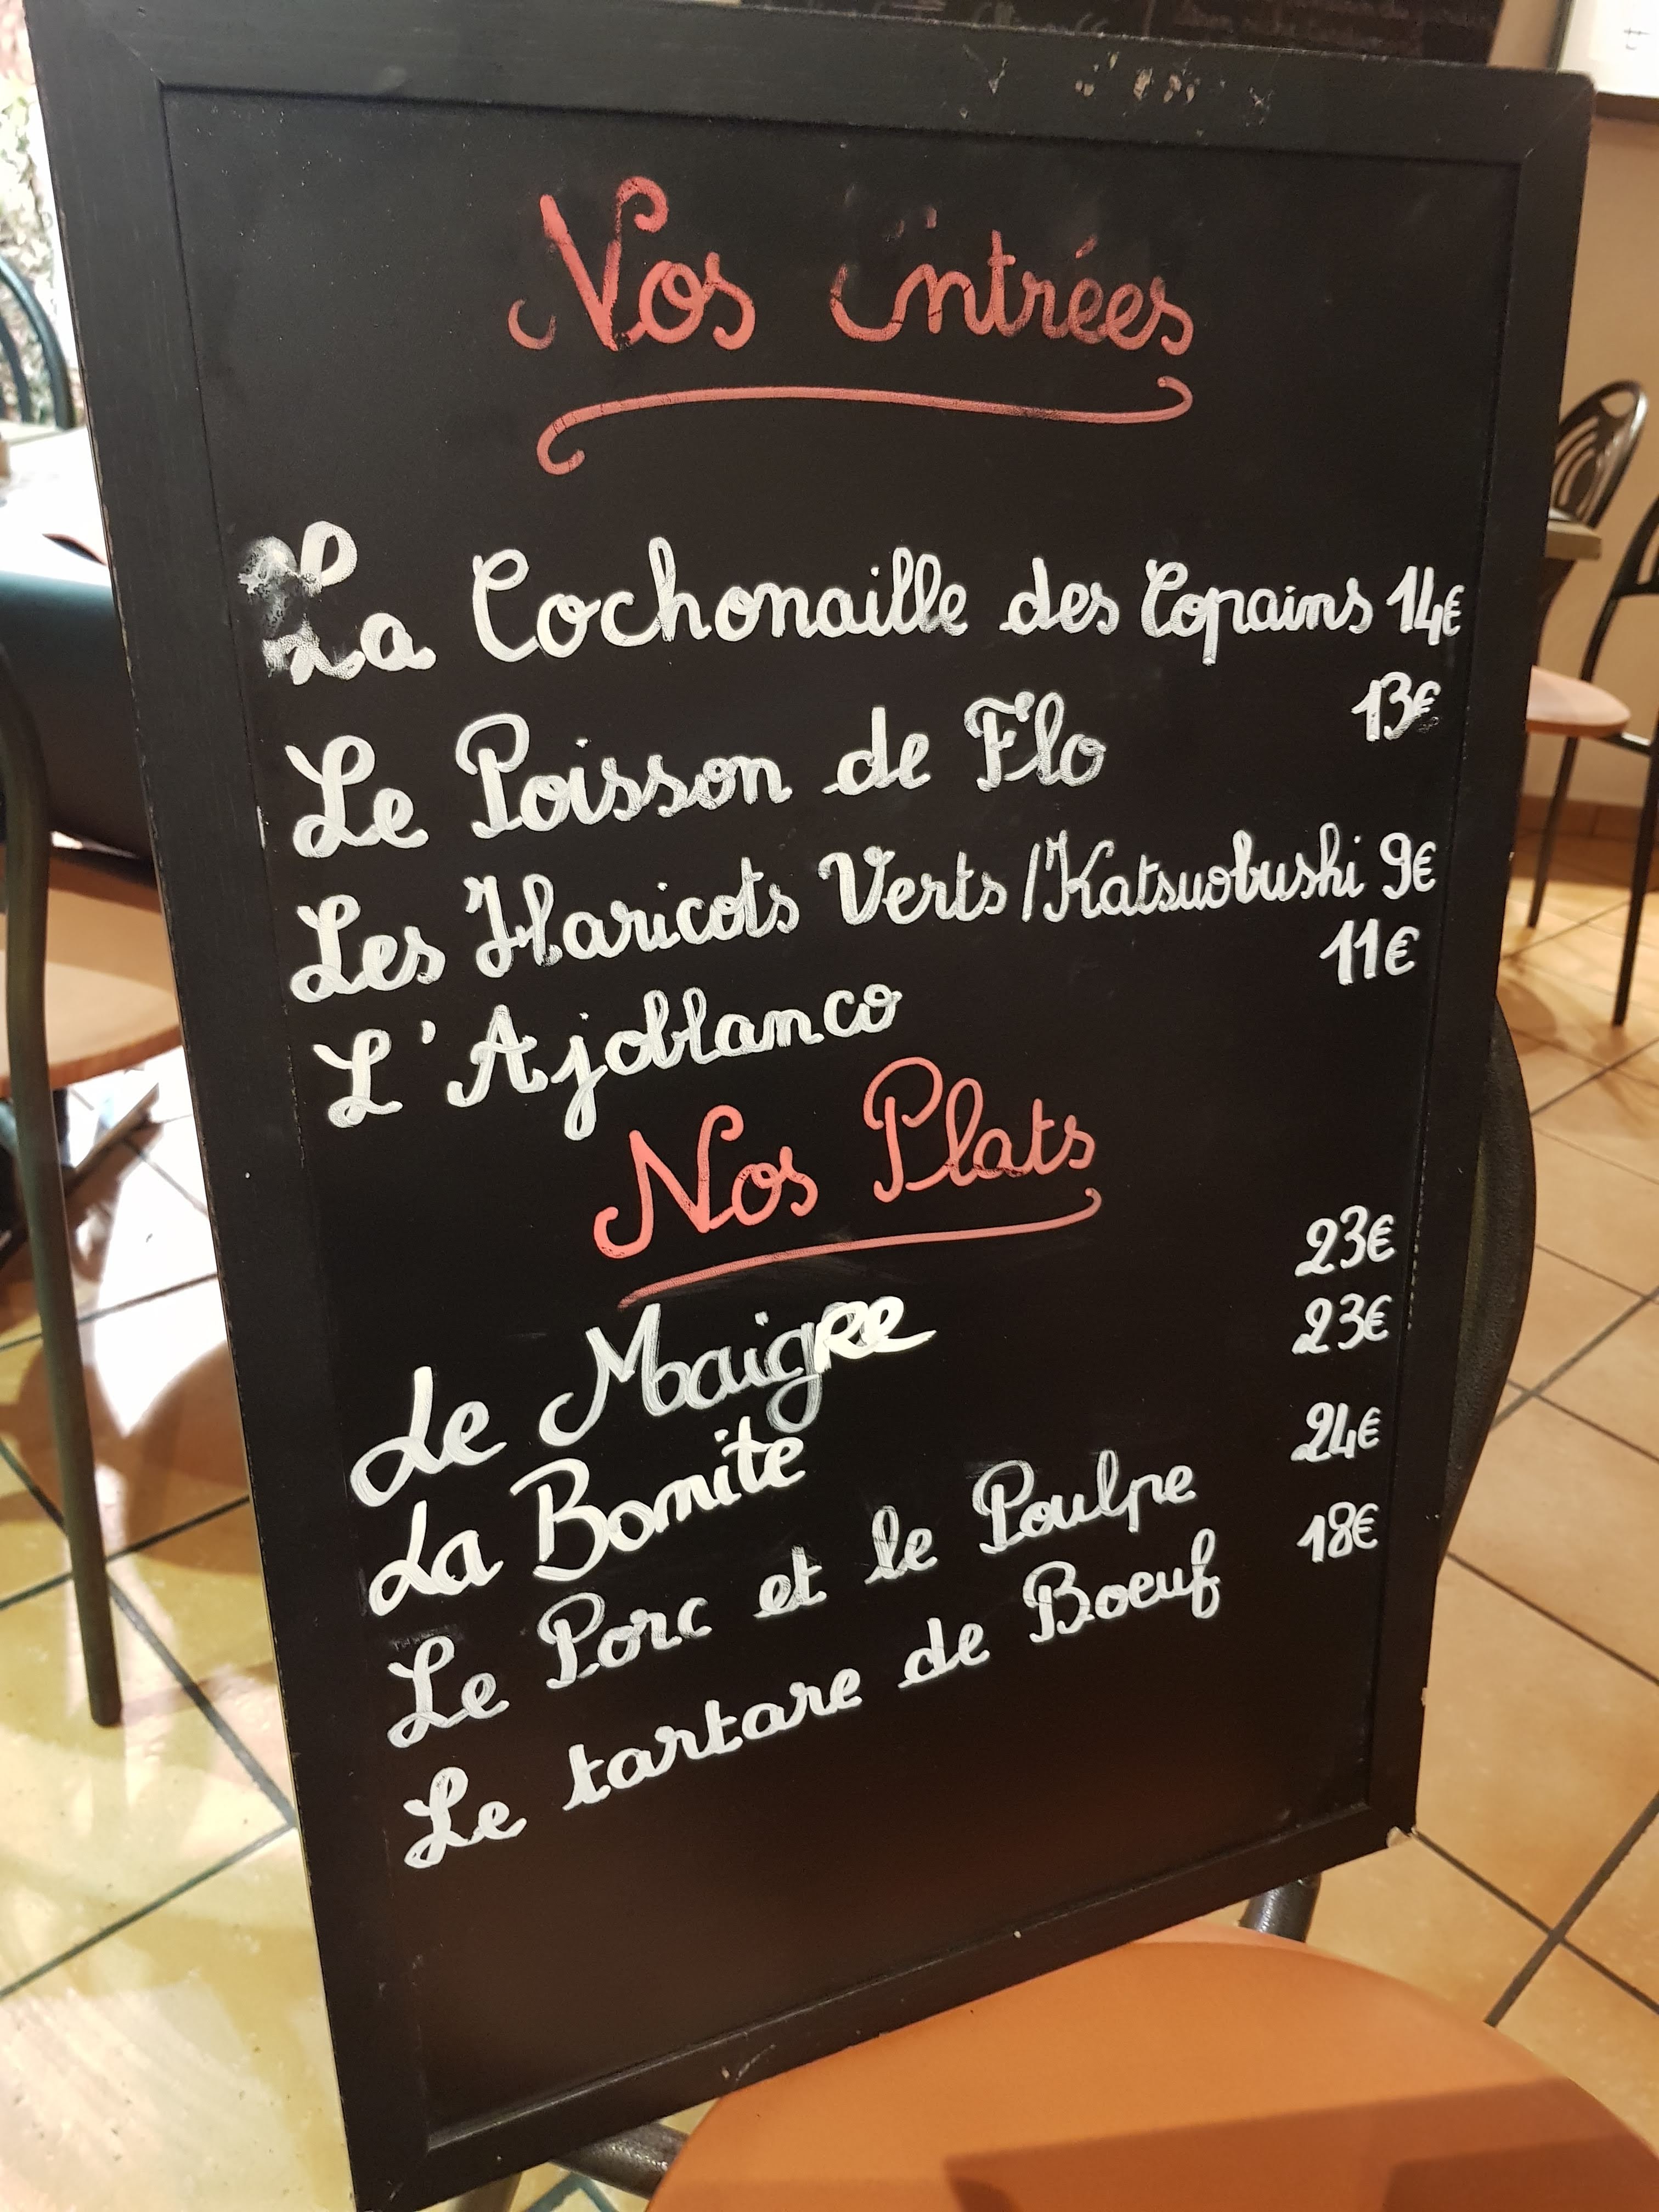 Nos Entrées
La Cochonaille des Copains 14€
Le Poisson de Flo 13€
Les Haricots Verts / Katsuobushi 9€
L'Ajoblanco 11€
Nos Plats
Le Maigre 23€
La Bonite 23€
Le Porc et le Poulpe 24€
Le tartare de Boeuf 18€